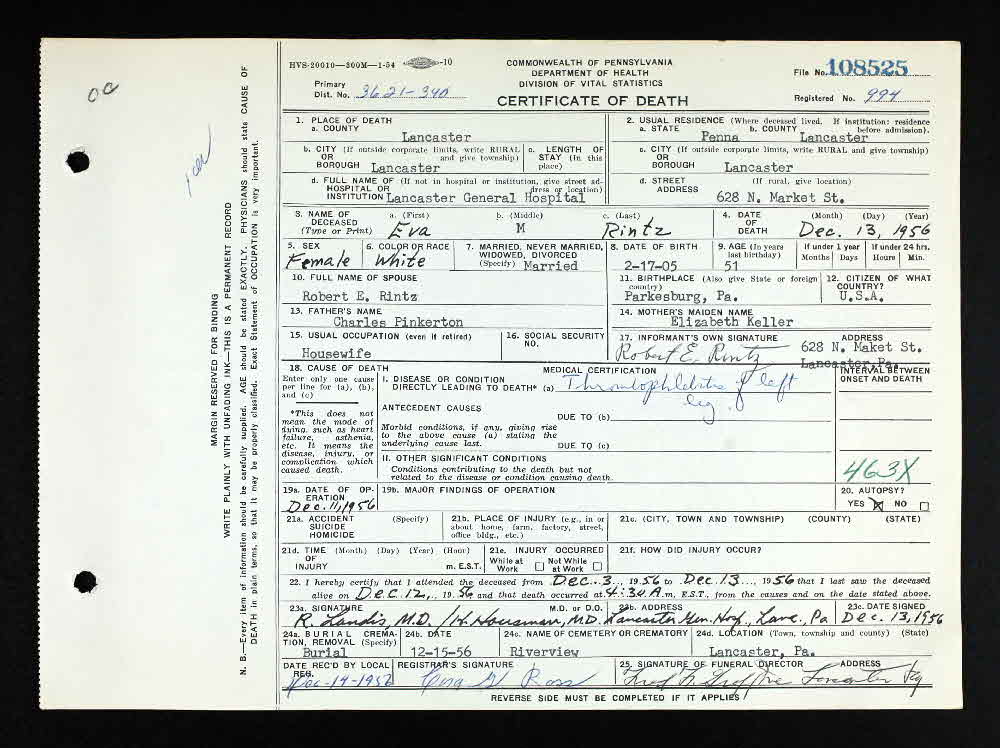 HVS-20010—300M—1-54 -10
COMMONWEALTH OF PENNSYLVANIA
DEPARTMENT OF HEALTH
DIVISION OF VITAL STATISTICS
CERTIFICATE OF DEATH
File No. 108525
Primary
Dist. No. 3621-340
Registered No. 994
MARGIN RESERVED FOR BINDING
WRITE PLAINLY WITH UNFADING INK—THIS IS A PERMANENT RECORD
N. B.—Every item of information should be carefully supplied. AGE should be stated EXACTLY. PHYSICIANS should state CAUSE OF
DEATH in plain terms, so that it may be properly classified. Exact Statement of OCCUPATION is very important.
1. PLACE OF DEATH
a. COUNTY
Lancaster
2. USUAL RESIDENCE (Where deceased lived. If institution: residence
before admission).
a. STATE Penna b. COUNTY Lancaster
b. CITY (If outside corporate limits, write RURAL
OR and give township)
BOROUGH Lancaster
c. LENGTH OF
STAY (In this
place)
c. CITY (If outside corporate limits, write RURAL and give township)
OR
BOROUGH Lancaster
d. FULL NAME OF (If not in hospital or institution, give street ad-
HOSPITAL OR dress or location)
INSTITUTION Lancaster General Hospital
d. STREET (If rural, give location)
ADDRESS
628 N. Market St.
3. NAME OF
DECEASED
(Type or Print)
a. (First) b. (Middle) c. (Last)
Eva M Rintz
4. DATE
OF
DEATH
(Month) (Day) (Year)
Dec. 13, 1956
5. SEX
Female
6. COLOR OR RACE
White
7. MARRIED, NEVER MARRIED,
WIDOWED, DIVORCED
(Specify) Married
8. DATE OF BIRTH
2-17-05
9. AGE (In years
last birthday)
51
If under 1 year
Months Days
If under 24 hrs.
Hours Min.
10. FULL NAME OF SPOUSE
Robert E. Rintz
11. BIRTHPLACE (Also give State or foreign
country)
Parkesburg, Pa.
12. CITIZEN OF WHAT
COUNTRY?
U.S.A.
13. FATHER'S NAME
Charles Pinkerton
14. MOTHER'S MAIDEN NAME
Elizabeth Keller
15. USUAL OCCUPATION (even if retired)
Housewife
16. SOCIAL SECURITY
NO.
17. INFORMANT'S OWN SIGNATURE ADDRESS
Robert E. Rintz 628 N. Maket St.
Lancaster,Pa.
18. CAUSE OF DEATH
Enter only one cause
per line for (a), (b),
and (c)
MEDICAL CERTIFICATION
INTERVAL BETWEEN
ONSET AND DEATH
I. DISEASE OR CONDITION
DIRECTLY LEADING TO DEATH* (a) Thrombophlebitis of left
leg.
*This does not
mean the mode of
dying, such as heart
failure, asthenia,
etc. It means the
disease, injury, or
complication which
caused death.
ANTECEDENT CAUSES
DUE TO (b)
Morbid conditions, if any, giving rise
to the above cause (a) stating the
underlying cause last.
DUE TO (c)
II. OTHER SIGNIFICANT CONDITIONS
Conditions contributing to the death but not
related to the disease or condition causing death.
463X
19a. DATE OF OP-
ERATION
Dec. 11, 1956
19b. MAJOR FINDINGS OF OPERATION
20. AUTOPSY?
YES NO
21a. ACCIDENT (Specify)
SUICIDE
HOMICIDE
21b. PLACE OF INJURY (e.g., in or
about home, farm, factory, street,
office bldg., etc.)
21c. (CITY, TOWN AND TOWNSHIP) (COUNTY) (STATE)
21d. TIME (Month) (Day) (Year) (Hour)
OF
INJURY m. E.S.T.
21e. INJURY OCCURRED
While at Not While
Work at Work
21f. HOW DID INJURY OCCUR?
22. I hereby certify that I attended the deceased from Dec. 3, 1956 to Dec. 13, 1956 that I last saw the deceased
alive on Dec 12, 1956 and that death occurred at 4:30 A. m, E.S.T., from the causes and on the date stated above.
23a. SIGNATURE M.D. or D.O.
R. Landis, M.D. / H. Housman, M.D.
23b. ADDRESS
Lancaster Gen. Hosp., Lanc., Pa
23c. DATE SIGNED
Dec. 13, 1956
24a. BURIAL, CREMA-
TION, REMOVAL (Specify)
Burial
24b. DATE
12-15-56
24c. NAME OF CEMETERY OR CREMATORY
Riverview
24d. LOCATION (Town, township and county) (State)
Lancaster, Pa.
DATE REC'D BY LOCAL
REG.
Dec-14-1956
REGISTRAR'S SIGNATURE
Ross
25. SIGNATURE OF FUNERAL DIRECTOR ADDRESS
Fred F. Groff Inc Lancaster Pa
REVERSE SIDE MUST BE COMPLETED IF IT APPLIES